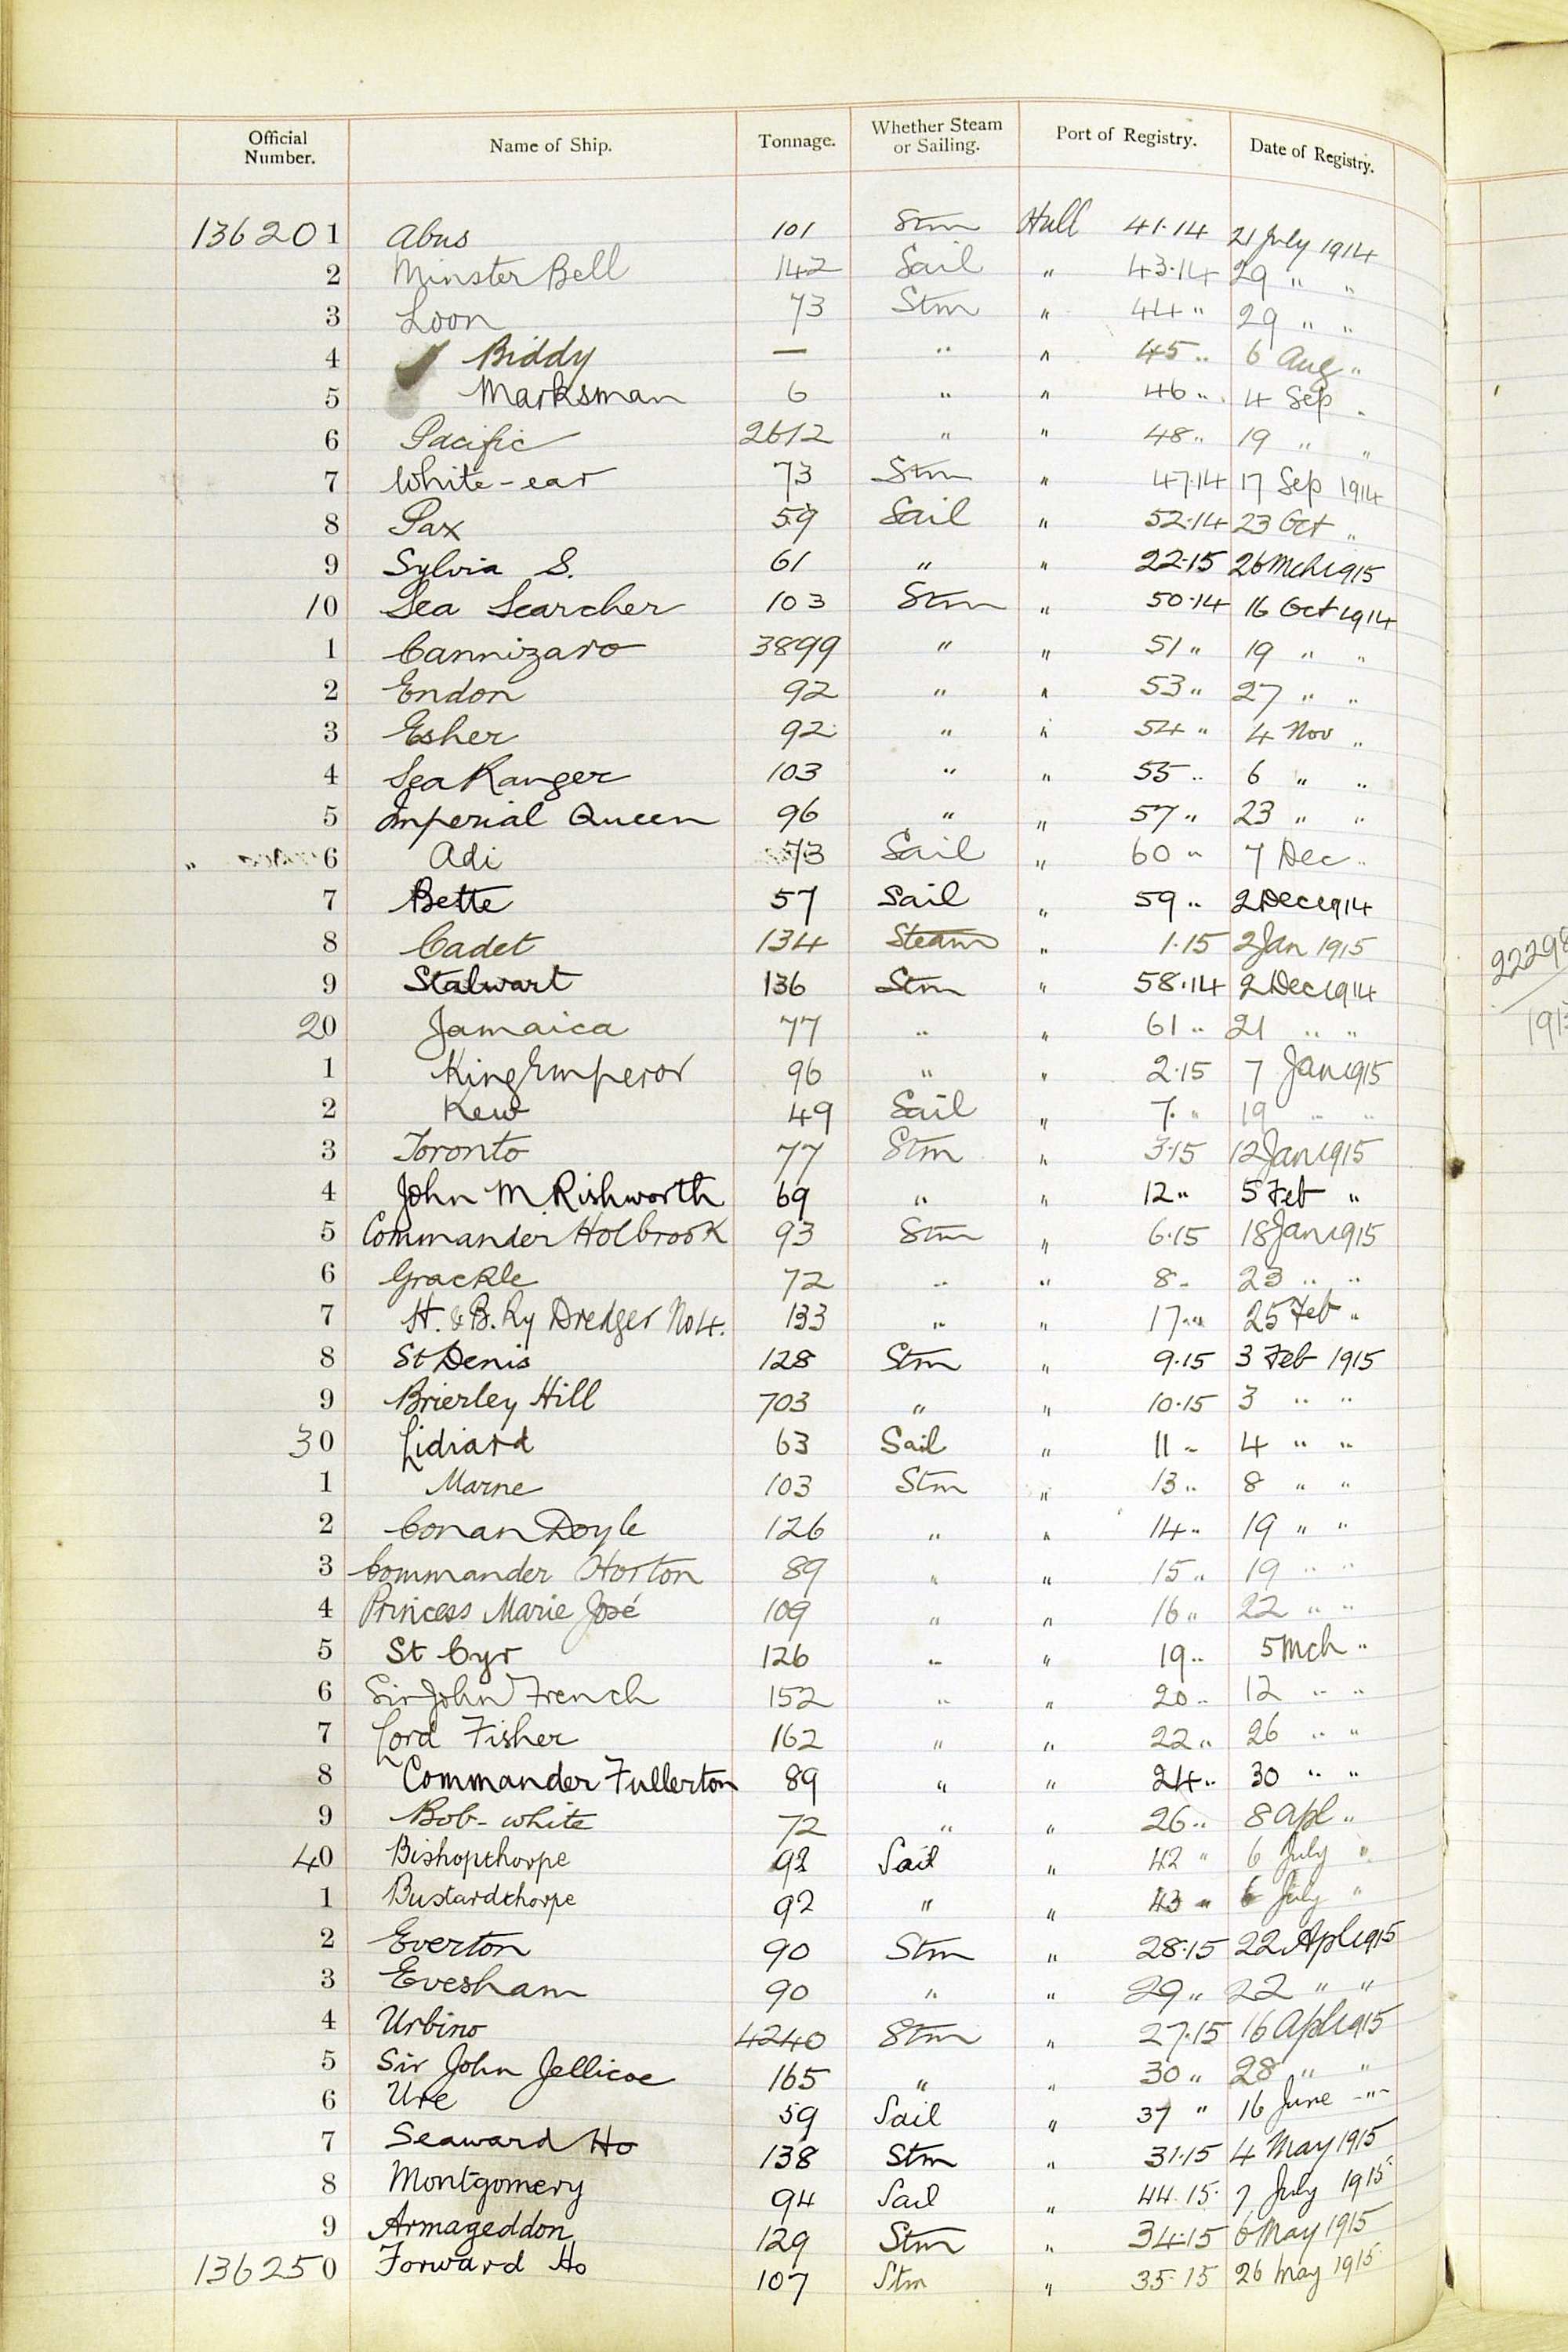 Official Number. Name of Ship. Tonnage. Whether Steam or Sailing. Port of Registry. Date of Registry.
136201 Abus 101 Stm Hull 41.14 21 July 1914
2 Minster Bell 142 Sail " 43.14 29 " "
3 Loon 73 Stm " 44 " 29 " "
4 Biddy — " " 45 " 6 Aug "
5 Marksman 6 " " 46 " 4 Sep "
6 Pacific 2612 " " 48 " 19 " "
7 White-ear 73 Stm " 47.14 17 Sep 1914
8 Pax 59 Sail " 52.14 23 Oct "
9 Sylvia S. 61 " " 22.15 26 Mch 1915
10 Sea Searcher 103 Stm " 50.14 16 Oct 1914
1 Cannizaro 3899 " " 51 " 19 " "
2 Endon 92 " " 53 " 27 " "
3 Esher 92 " " 54 " 4 Nov "
4 Sea Ranger 103 " " 55 " 6 " "
5 Imperial Queen 96 " " 57 " 23 " "
" 6 Adi 73 Sail " 60 " 7 Dec "
7 Bette 57 Sail " 59 " 2 Dec 1914
8 Cadet 134 Steam " 1.15 2 Jan 1915
9 Stalwart 136 Stm " 58.14 2 Dec 1914
20 Jamaica 77 " " 61 " 21 " "
1 King Emperor 96 " " 2.15 7 Jan 1915
2 Kew 49 Sail " 7. " 19 " "
3 Toronto 77 Stm " 3.15 12 Jan 1915
4 John M Rishworth 69 " " 12 " 5 Feb "
5 Commander Holbrook 93 Stm " 6.15 18 Jan 1915
6 Grackle 72 " " 8 " 23 " "
7 H. & B. Ry Dredger No 4. 133 " " 17 " 25 Feb "
8 St Denis 128 Stm " 9.15 3 Feb 1915
9 Brierley Hill 703 " " 10.15 3 " "
30 Lidiard 63 Sail " 11 " 4 " "
1 Marne 103 Stm " 13 " 8 " "
2 Conan Doyle 126 " " 14 " 19 " "
3 Commander Horton 89 " " 15 " 19 " "
4 Princess Marie José 109 " " 16 " 22 " "
5 St Cyr 126 " " 19 " 5 Mch "
6 Sir John French 152 " " 20 " 12 " "
7 Lord Fisher 162 " " 22 " 26 " "
8 Commander Fullerton 89 " " 24 " 30 " "
9 Bob-white 72 " " 26 " 8 Apl "
40 Bishopthorpe 92 Sail " 42 " 6 July "
1 Bustardthorpe 92 " " 43 " 6 July "
2 Everton 90 Stm " 28.15 22 Apl 1915
3 Evesham 90 " " 29 " 22 " "
4 Urbino 4240 Stm " 27.15 16 Apl 1915
5 Sir John Jellicoe 165 " " 30 " 28 " "
6 Ure 59 Sail " 37 " 16 June "
7 Seaward Ho 138 Stm " 31.15 4 May 1915
8 Montgomery 94 Sail " 44.15 7 July 1915
9 Armageddon 129 Stm " 34.15 6 May 1915
136250 Forward Ho 107 Stm " 35.15 26 May 1915